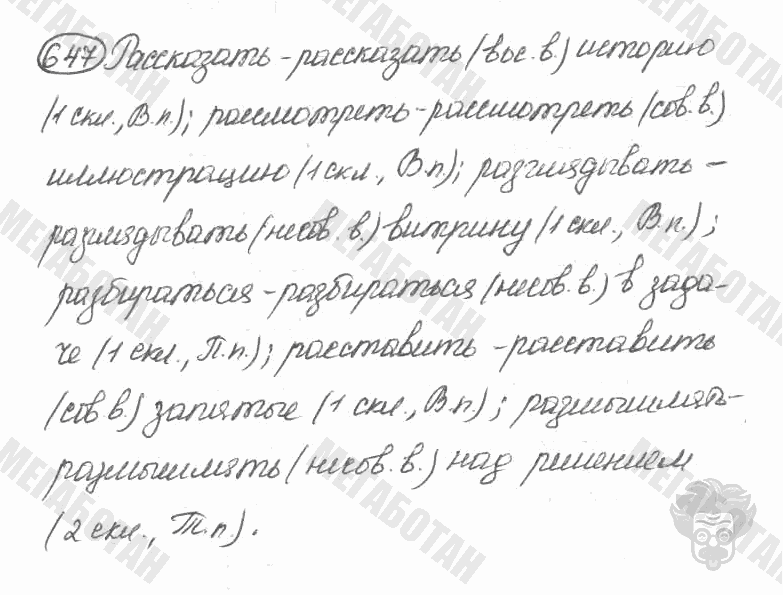 647 Рассказать - рассказать (вос. в.) историю
(1 скл., В.п.); рассмотреть - рассмотреть (сов. в.)
иллюстрацию (1 скл., В.п.); разглядывать -
разглядывать (несов. в.) витрину (1 скл., В.п.);
разбираться - разбираться (несов. в.) в зада-
че (1 скл., П.п.); расставить - расставить
(сов. в.) запятые (1 скл., В.п.); размышлять -
размышлять (несов. в.) над решением
(2 скл., Т.п.).
МЕГАБОТАН